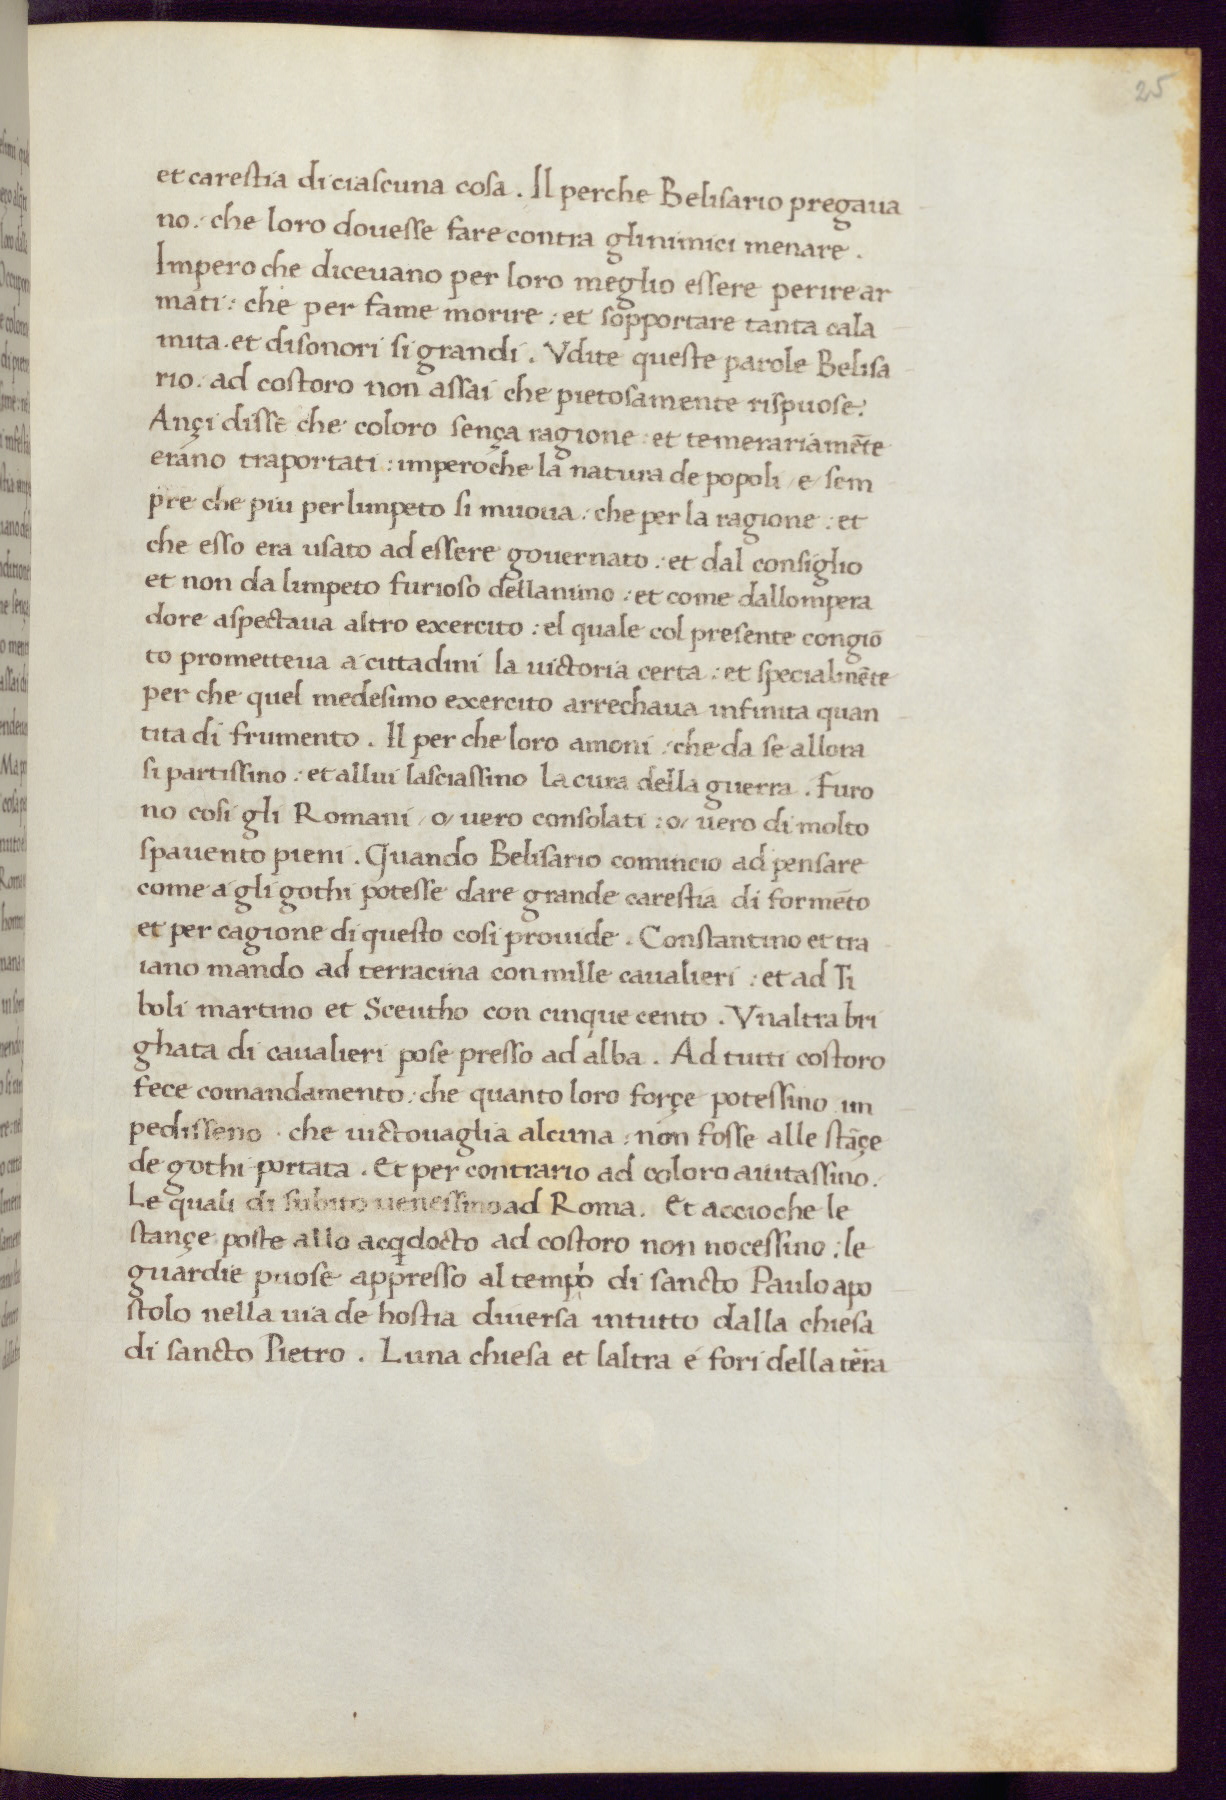 25
et carestia di ciascuna cosa . Il perche Belisario pregaua
no : che loro douesse fare contra glinimici menare .
Impero che diceuano per loro meglio essere perire ar
mati : che per fame morire : et sopportare tanta cala
mita . et disonori si grandi . Vdite queste parole Belisa
rio . ad costoro non assai che pietosamente rispuose :
Ançi disse che coloro sença ragione : et temerariamēte
erano traportati : impero che la natura de popoli / e / sem
pre che piu per limpeto si muoua : che per la ragione : et
che esso era usato ad essere gouernato : et dal consiglio
et non da limpeto furioso dellanimo : et come dallompera
dore aspectaua altro exercito : el quale col presente congiō
to prometteua a cittadini la uictoria certa : et specialmēte
per che quel medesimo exercito arrechaua infinita quan
tita di frumento . Il per che loro amoni : che da se allora
si partissino : et allui lasciassino la cura della guerra . Furo
no cosi gli Romani / o / uero consolati : o / uero di molto
spauento pieni . Quando Belisario comincio ad pensare
come a gli gothi potesse dare grande carestia di formēto
et per cagione di questo cosi prouide . Constantino et tra
iano mando ad terracina con mille caualieri : et ad Ti
boli martino et Sceutho con cinque cento . Vnaltra bri
ghata di caualieri pose presso ad alba . Ad tutti costoro
fece comandamento : che quanto loro forçe potessino im
pedisseno . che uictouaglia alcuna : non fosse alle stāçe
de gothi portata . Et per contrario ad coloro aiutassino .
Le quali di subito uenessino ad Roma . Et accioche le
stançe poste allo acq̄docto ad costoro non nocessino : le
guardie puose appresso al tempo di sancto Paulo apo
stolo nella uia de hostia diuersa intutto dalla chiesa
di sancto Pietro . Luna chiesa et laltra e fori della terra